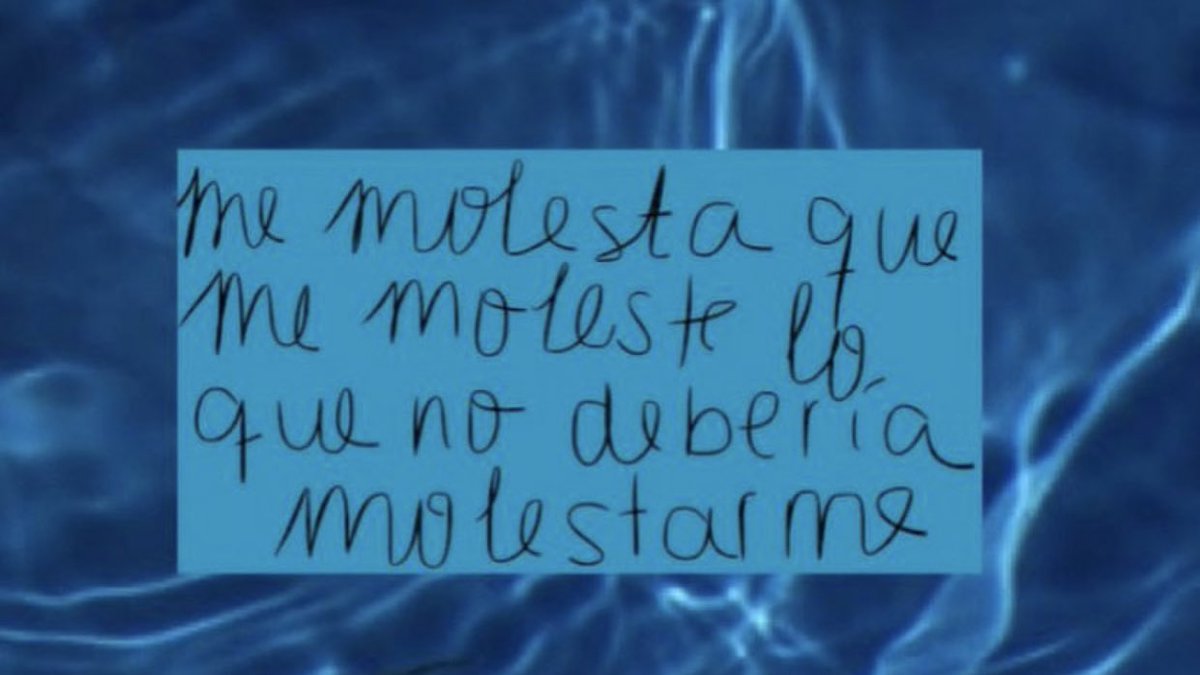 me molesta que
me moleste lo
que no debería
molestarme